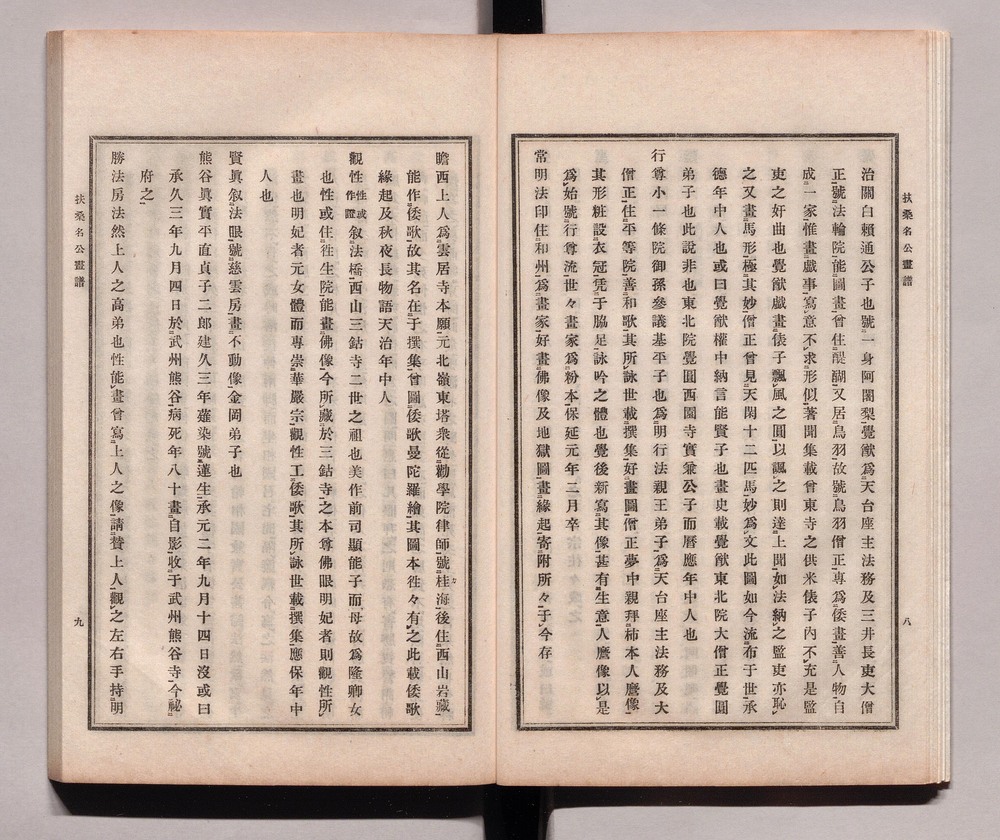 扶桑名公畫譜
八
治關白賴通公子也號一身阿闍梨覺猷爲天台座主法務及三井長吏大僧
正號法輪院能圖畫曾住醍醐又居鳥羽故號鳥羽僧正專爲倭畫善人物自
成一家惟畫戲事寫意不求形似著聞集載曾東寺之供米俵子內不充是監
吏之奸曲也覺猷戲畫俵子飄風之圓以諷之則達上聞如法納之監吏亦恥
之又畫馬形極其妙僧正曾見天閑十二匹馬妙爲文此圖如今流布于世承
德年中人也或曰覺猷權中納言能賢子也畫史載覺猷東北院大僧正覺圓
弟子也此說非也東北院覺圓西園寺實兼公子而曆應年中人也
行尊小一條院御孫參議基平子也爲明行法親王弟子爲天台座主法務及大
僧正住平等院善和歌其所詠世載撰集好畫圖僧正夢中親拜柿本人麿像
其形粧設衣冠凭于脇足詠吟之體也覺後新寫其像甚有生意人麿像以是
爲始號行尊流世々畫家爲粉本保延元年二月卒
常明法印住和州爲畫家好畫佛像及地獄圖畫緣起寄附所々于今存
瞻西上人爲雲居寺本願元北嶺東塔衆從勸學院律師號桂海後住西山岩藏
能作倭歌故其名在于撰集曾圖倭歌曼陀羅繪其圖本徃々有之此載倭歌
緣起及秋夜長物語天治年中人
觀性性或作證叙法橋西山三鈷寺二世之祖也美作前司顯能子而母故爲隆卿女
也性或住徃生院能畫佛像今所藏於三鈷寺之本尊佛眼明妃者則觀性所
畫也明妃者元女體而專崇華嚴宗觀性工倭歌其所詠世載撰集應保年中
人也
賢眞叙法眼號慈雲房畫不動像金岡弟子也
熊谷眞實平直貞子二郎建久三年薙染號蓮生承元二年九月十四日沒或曰
承久三年九月四日於武州熊谷病死年八十畫自影收于武州熊谷寺今祕
府之
勝法房法然上人之高弟也性能畫曾寫上人之像請贊上人觀之左右手持明
扶桑名公畫譜
九